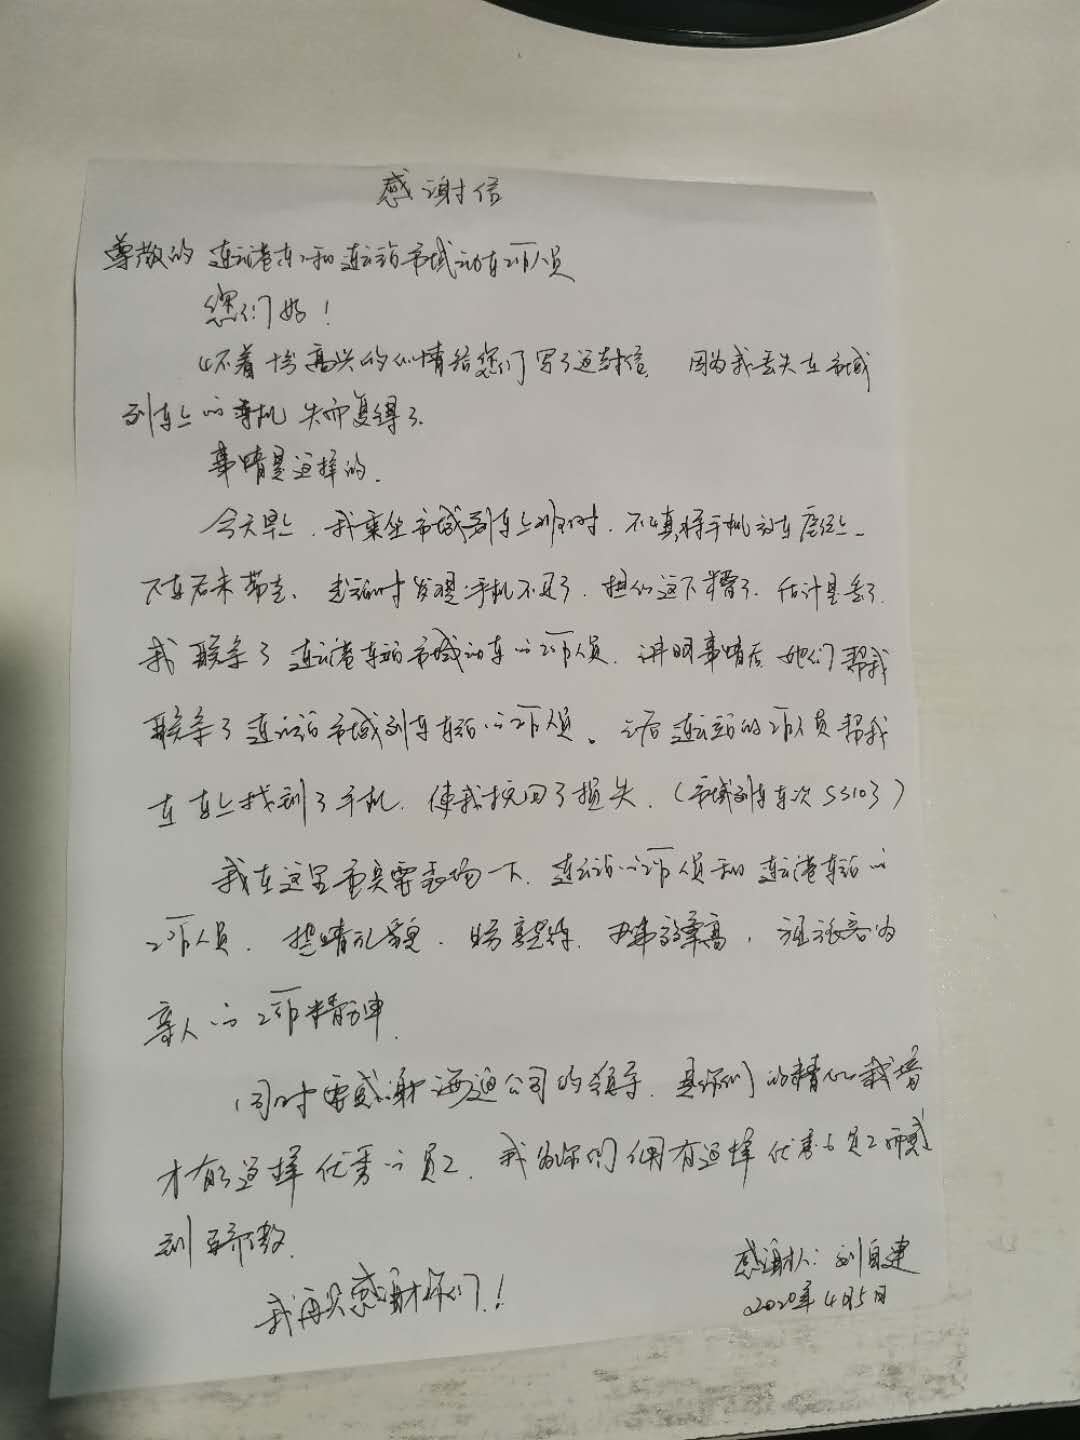 感谢信
尊敬的 连云港东和连云站市域动车工作人员
您们好！
怀着十分高兴的心情给您们写了这封信，因为我丢失在市域
列车上的手机失而复得了.
事情是这样的.
今天早上，我乘坐市域列车上班时，不慎将手机放在座位上.
下车后未带走、出站时发现手机不见了，想必这下糟了，估计是丢了.
我联系了连云港车站市域动车的工作人员，讲明事情后 她们帮我
联系了连云站市域列车车站的工作人员。之后连云站的工作人员帮我
在车上找到了手机，使我挽回了损失.（市域列车车次 S5103）
我在这里重点要表扬一下，连云站的工作人员和连云港车站的
工作人员，热情礼貌，办事效率高，视旅客为
亲人的工作精神.
同时要感谢 公司的领导，是你们的精心栽培
才有了这样优秀的员工，我为你们拥有这样优秀的员工而感
到骄傲.
我再次感谢你们！
感谢人：刘自建
2020年4月5日